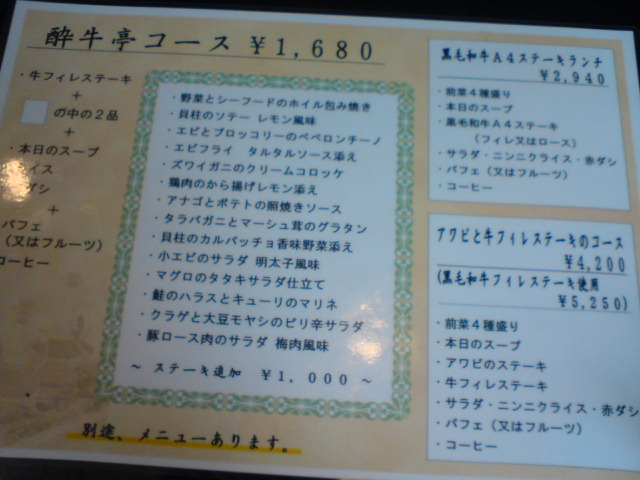 酔牛亭コース ¥1,680
・牛フィレステーキ
＋
の中の２品
＋
・本日のスープ
イス
ダシ
＋
パフェ
（又はフルーツ）
コーヒー
・野菜とシーフードのホイル包み焼き
・貝柱のソテー レモン風味
・エビとブロッコリーのペペロンチーノ
・エビフライ タルタルソース添え
・ズワイガニのクリームコロッケ
・鶏肉のから揚げレモン添え
・アナゴとポテトの照焼きソース
・タラバガニとマーシュ茸のグラタン
・貝柱のカルパッチョ香味野菜添え
・小エビのサラダ 明太子風味
・マグロのタタキサラダ仕立て
・鮭のハラスとキューリのマリネ
・クラゲと大豆モヤシのピリ辛サラダ
・豚ロース肉のサラダ 梅肉風味
～ ステーキ追加 ¥１，０００ ～
別途、メニューあります。
黒毛和牛Ａ４ステーキランチ
¥２,９４０
・前菜４種盛り
・本日のスープ
・黒毛和牛Ａ４ステーキ
（フィレ又はロース）
・サラダ・ニンニクライス・赤ダシ
・パフェ（又はフルーツ）
・コーヒー
アワビと牛フィレステーキのコース
¥４,２００
(黒毛和牛フィレステーキ使用
¥５,２５０)
・前菜４種盛り
・本日のスープ
・アワビのステーキ
・牛フィレステーキ
・サラダ・ニンニクライス・赤ダシ
・パフェ（又はフルーツ）
・コーヒー